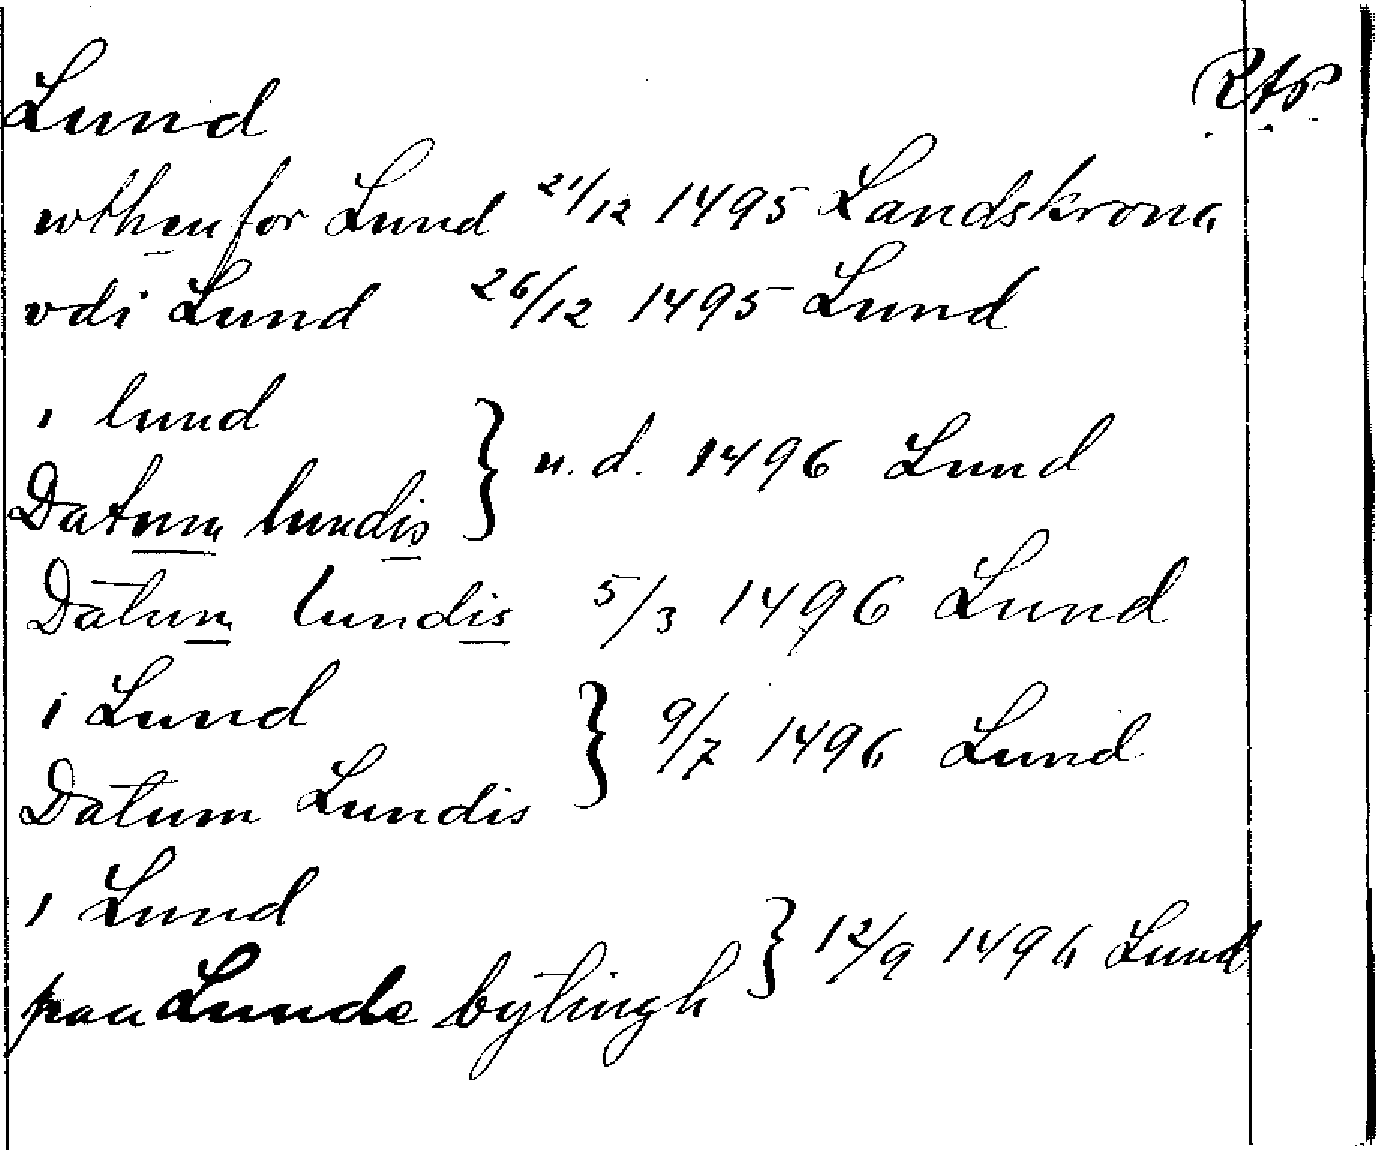 Lund
wthen for Lund 21/12 1495 Landskrona
vdi Lund 26/12 1495 Lund
i lund
Datum lundis } u. d. 1496 Lund
Datum lundis 5/3 1496 Lund
i Lund
Datum Lundis } 9/7 1496 Lund
i Lund
paa Lunde bytingh } 12/9 1496 Lund